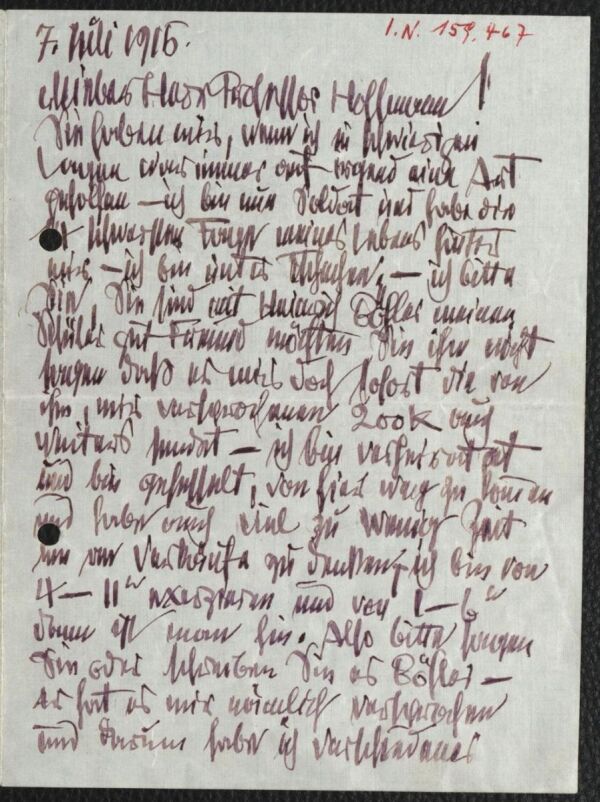 I.N. 159.467
7. Juli 1915.
Lieber Herr Professor Hoffmann!
Sie haben mir, wenn ich in schwierigen
Lagen war immer auf irgend eine Art
geholfen – ich bin nun Soldat und habe die
14 schwersten Tage meines Lebens hinter
mir – ich bin unter Tschechen, – ich bitte
Sie, Sie sind mit Heinrich Böhler meinem
Schüler gut Freund möchten Sie ihm nicht
sagen daß er mir doch sofort die von
ihm, mir versprochenen 200 K auch
weiters sendet – ich bin verheiratet
und bin gefesselt, von hier weg zu kommen
und habe auch viel zu wenig Zeit
um an Verkäufe zu denken, – ich bin von
4 – 11ʰ exerzieren und von 1 – 6ʰ
dann ist man hin. Also bitte sagen
Sie oder schreiben Sie es Böhler –
er hat es mir nämlich versprochen
und darum habe ich verschiedenes